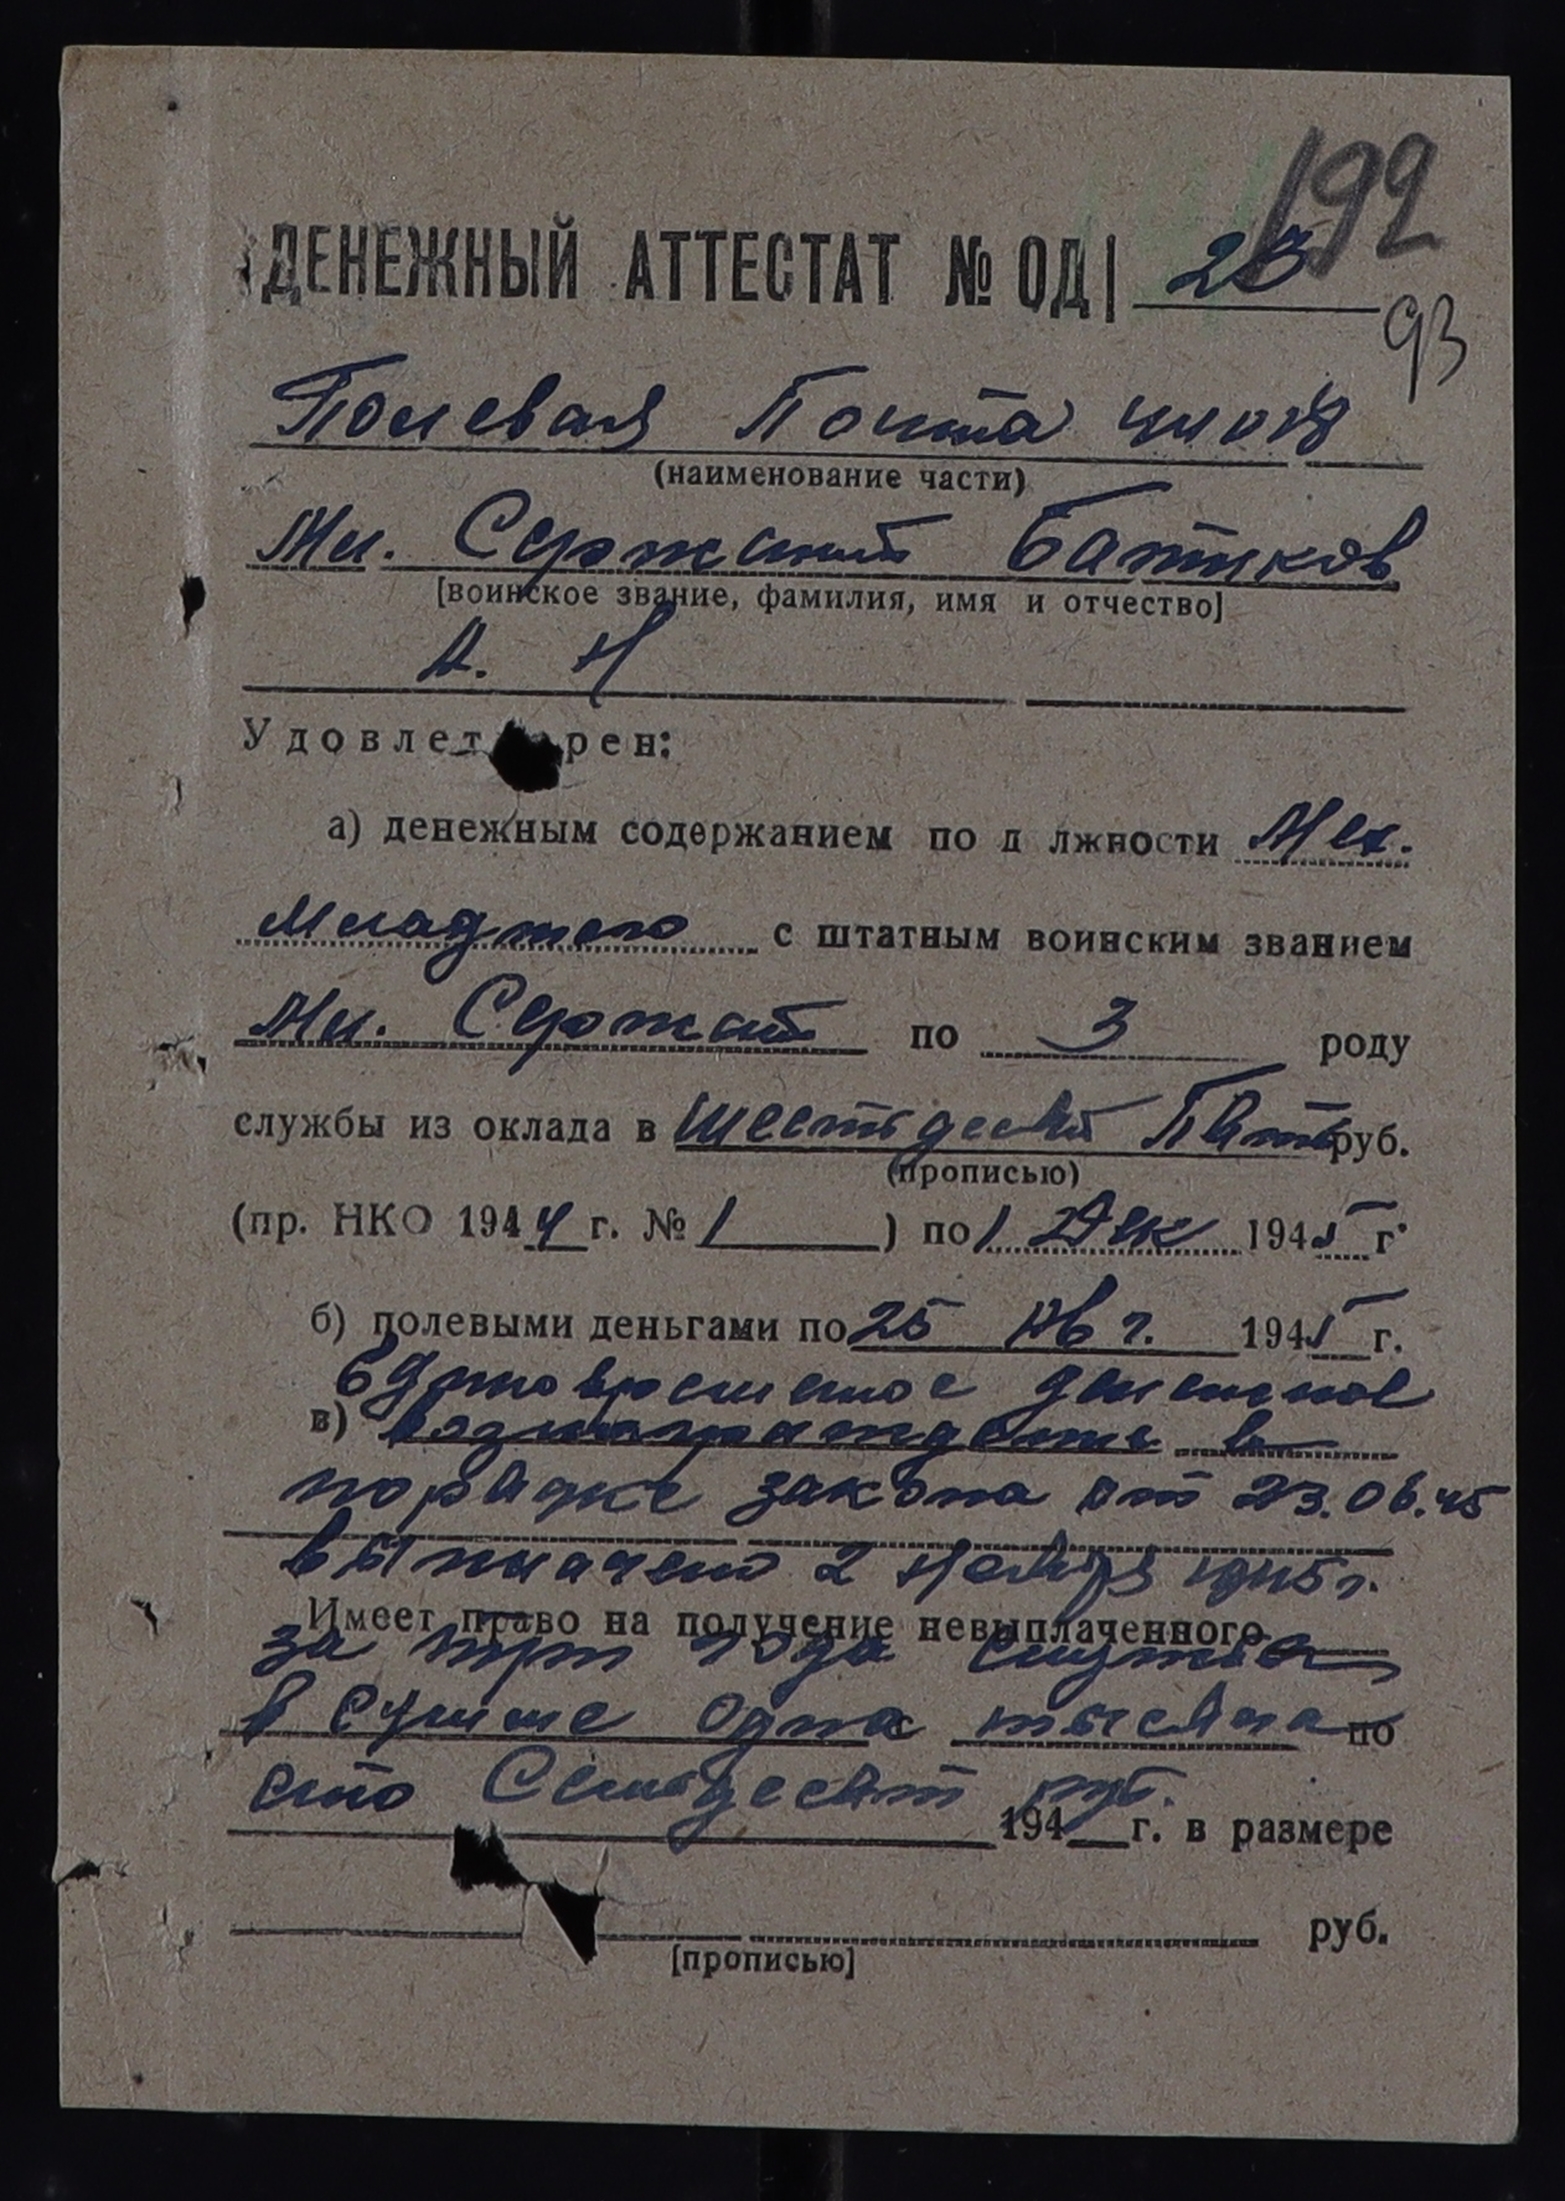 192
ДЕНЕЖНЫЙ АТТЕСТАТ № ОД| 23
93
Полевая Почта
(наименование части)
Мл. Сержант Батиков
[воинское звание, фамилия, имя и отчество]
А. Н
Удовлет рен:
а) денежным содержанием по д лжности Мех.
Младшего с штатным воинским званием
Мл. Сержант по 3 роду
службы из оклада в Шестьдесят Пять руб.
(прописью)
(пр. НКО 1944 г. № 1 ) по 1 Дек 1945 г.
б) полевыми деньгами по 25 Авг. 1945 г.
Единовременное денежное
в) вознаграждение в
порядке закона от 23.06.45
выплачено 2 Ноября 1945 г.
Имеет право на получение невыплаченного
за три года службы
в сумме одна тысяча по
сто Семьдесят руб.
194 г. в размере
руб.
[прописью]